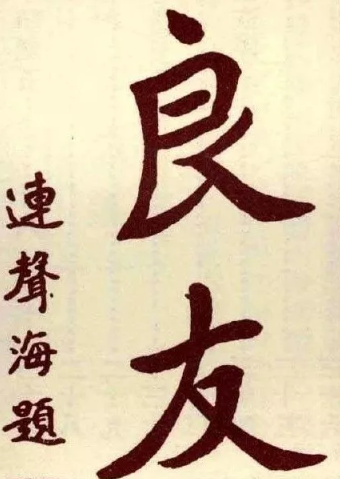 良友
連聲海題